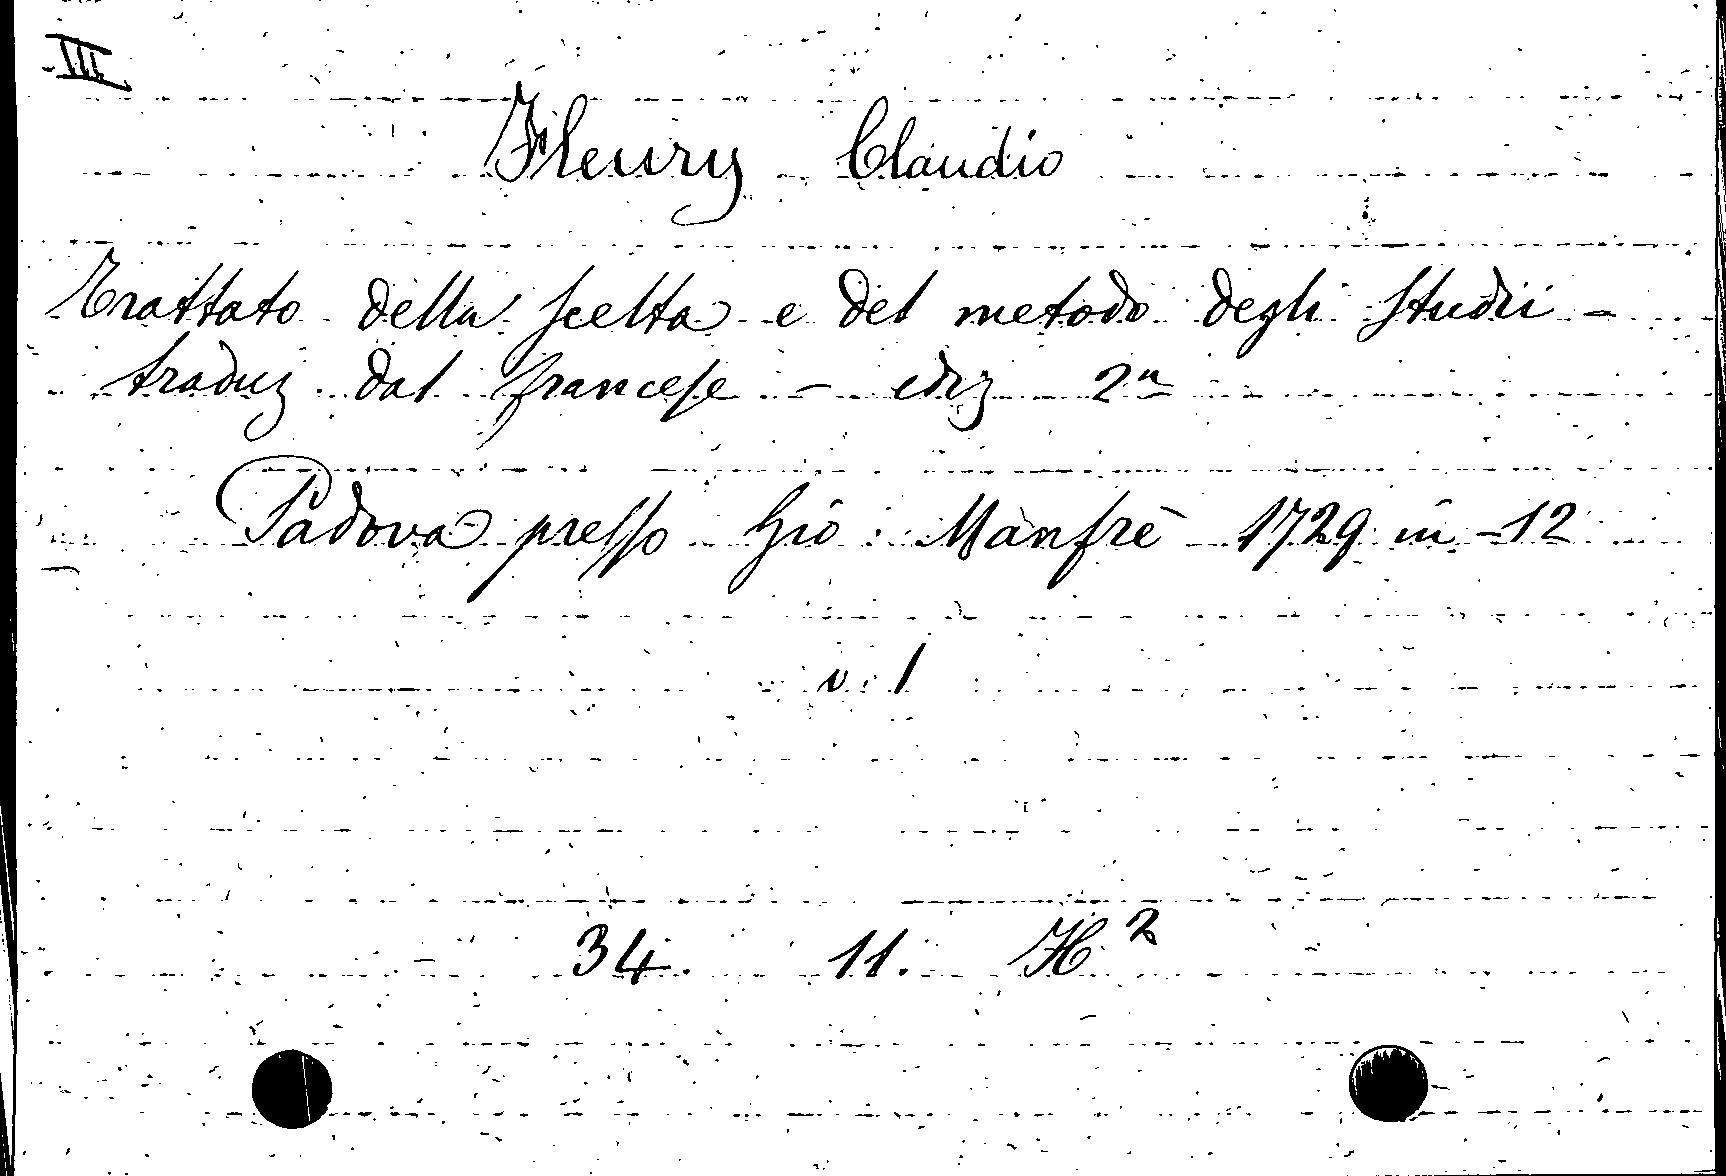 III
Fleury Claudio
Trattato della scelta e del metodo degli studii -
traduz dal francese - ediz 2a
Padova presso Gio: Manfrè 1729 in -12
v. 1
34. 11. H.2